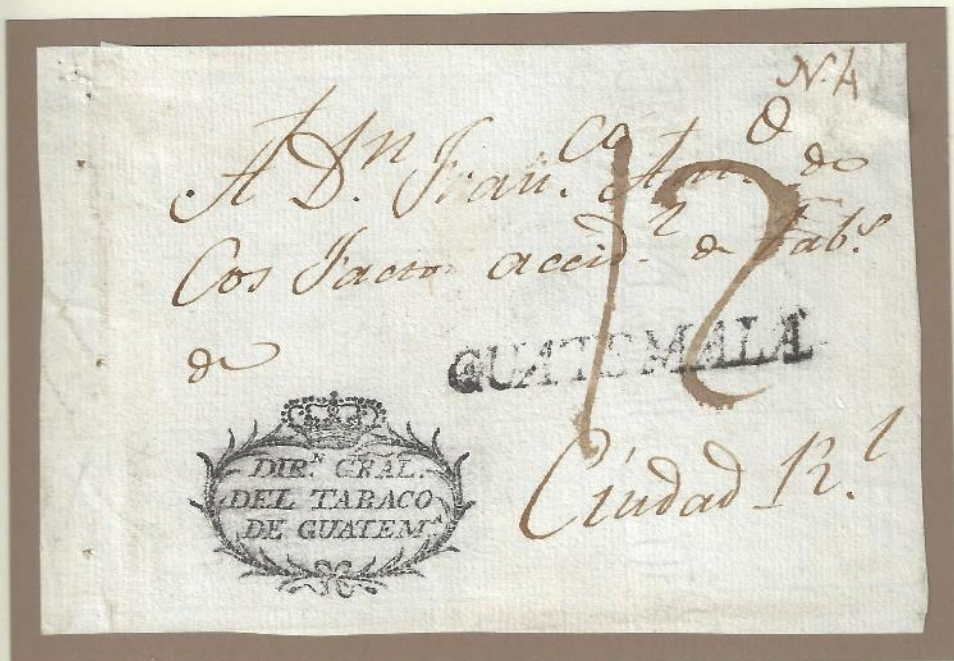 N. 4
A Dn. Franco. Anto. de
Cos Factor accid.l de Tabs.
de
12
GUATEMALA
DIR.N GRAL.
DEL TABACO
DE GUATEM.A
Ciudad R.l